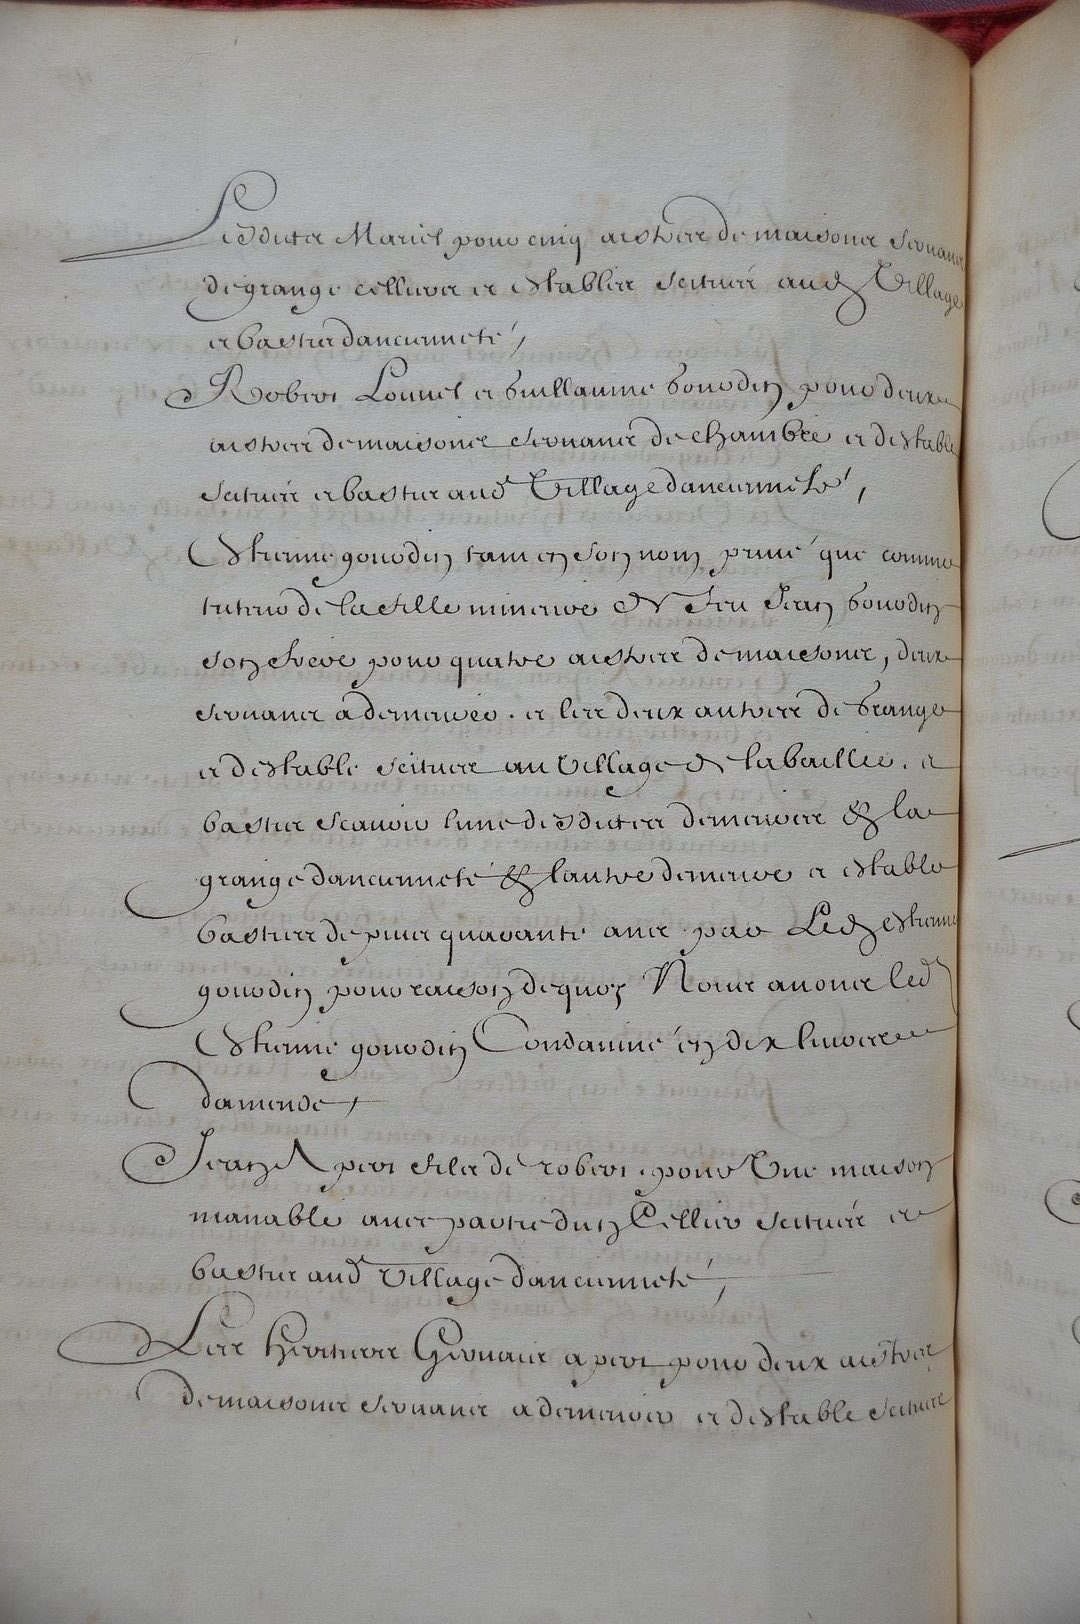 Lesdites Mariel pour cinq aistres de maisons servans
de grange celliers et establis scitués aud Village
et bastis danciennete,
Robert Louuel et Guillaume Gourdin pour deux
aistres de maisons servans de chambre et destable
scitués et bastis aud Village dancienneté,
Estienne gourdin tant en son nom privé que comme
tuteur de la fille mineure de feu Jean Gourdin
son frere pour quatre aistres de maisons, deux
servans a demeurer. et les deux autres de Grange
et destable scitués au Village de la baillie. et
bastis scavoir lune desdites demeures & la
grange dancienneté & lautre demeure et estable
basties depuis quarante ans par Led estienne
gourdin pour raison dequoy Nous avons led
Estienne gourdin Condamné en dix livres
damende,
Jean Apert fils de robert. pour Une maison
manable avec partie dun Cellier scitués et
bastis aud Village dancienneté,
Les heritiers Gervais apert pour deux aistres
de maisons servans a demeurer et destable scitués